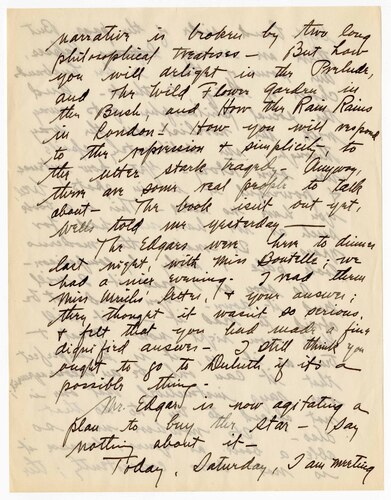 narrative is broken by two long
philosophical treatises — But how
you will delight in the Prelude,
and The Wild Flower Garden in
the Bush, and How the Rain Rains
in London! How you will respond
to the repression & simplicity, to
the utter stark tragedy — Anyway,
there are some real people to talk
about — The book isn't out yet,
Wells told me yesterday —
The Edgars were here to dinner
last night with Miss Boutelle; we
had a nice evening. I read them
Miss letter, & your answer;
they thought it wasn't so serious,
& felt that you had made a fine
dignified answer — I still think you
ought to go to Duluth if it's a
possible thing.
Mr. Edgar is now agitating a
plan to buy the Star — say
nothing about it —
Today, Saturday, I am meeting